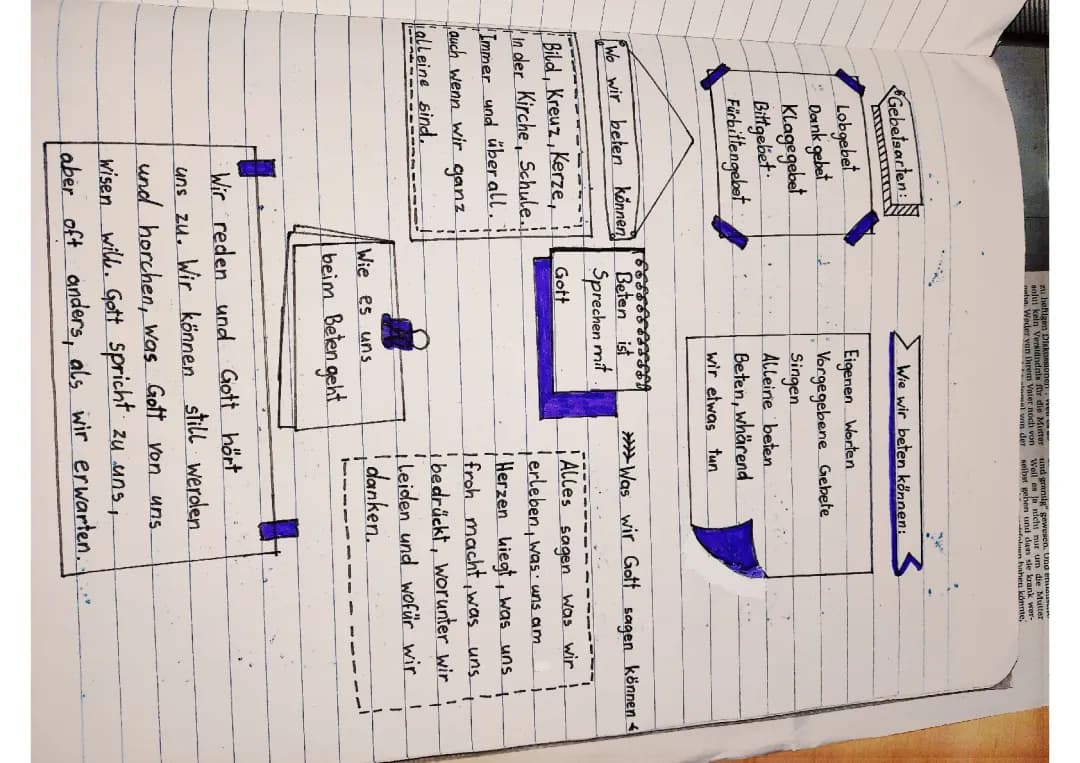 Gebetsarten:
Lobgebet
Dankgebet
Klagegebet
Bittgebet.
Fürbittengebet
Wie wir beten können:
Eigenen Worten
Vorgegebene Gebete
Singen
Alleine beten
Beten, whärend
wir etwas tun
Wo wir beten können
Bild, Kreuz, Kerze,
In der Kirche, Schule.
Immer und überall.
auch wenn wir ganz
alleine sind.
Beten ist
Sprechen mit
Gott
Was wir Gott sagen können
Alles sagen was wir
erleben, was uns am
Herzen liegt, was uns
froh macht, was uns
bedrückt, worunter wir
leiden und wofür wir
danken.
Wie es uns
beim Beten geht
Wir reden und Gott hört
uns zu. Wir können still werden
und horchen, was Gott von uns
wisen will. Gott spricht zu uns,
aber oft anders, als wir erwarten.
zu heftigen Diskussionen
sofort kein Verständnis für die Mutter
nahm. Weder von ihrem Vater noch von
und grantig" gewesen. Und
Weil es ja nicht nur um die Mutter
selbst gehen und dass sie krank wer-